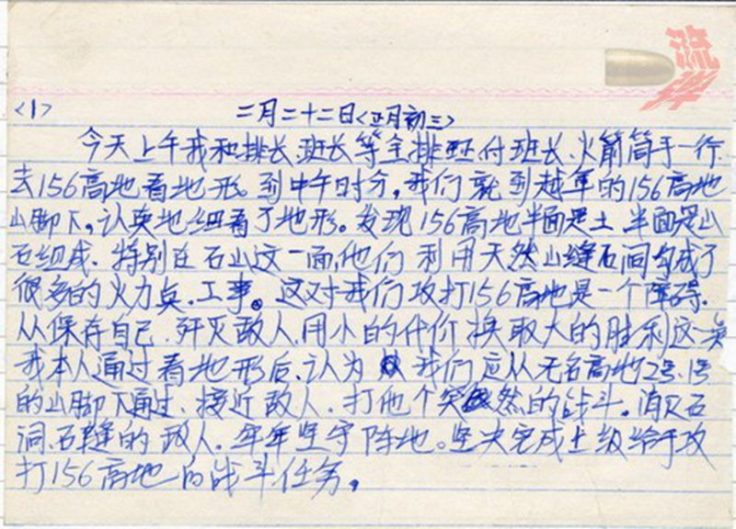 流年
<1> 二月二十二日<正月初三>
今天上午我和排长、班长等全排正付班长、火箭筒手一行
去156高地看地形。到中午时分,我们就到越军的156高地
山脚下,认真地细看了地形。发现156高地半面是土 半面是山
石组成.特别在石山这一面,他们利用天然山缝石间构成了
很多的火力点、工事。这对我们攻打156高地是一个障碍.
从保存自己.歼灭敌人.用小的代价换取大的胜利这一点
我本人通过看地形后.认为 我们应从无名高地2号.1号
的山脚下通过.接近敌人.打他个突然的战斗。消灭石
洞.石缝的敌人.牢牢坚守阵地。坚决完成上级给予攻
打156高地的战斗任务。